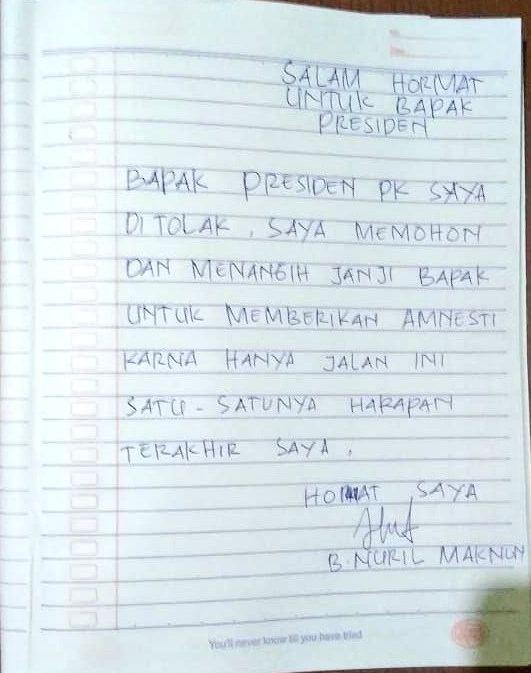 SALAM HORMAT
UNTUK BAPAK
PRESIDEN
BAPAK PRESIDEN PK SAYA
DI TOLAK, SAYA MEMOHON
DAN MENANGIH JANJI BAPAK
UNTUK MEMBERIKAN AMNESTI
KARNA HANYA JALAN INI
SATU-SATUNYA HARAPAN
TERAKHIR SAYA.
HORMAT SAYA
B. NURIL MAKNUN
You'll never know till you have tried